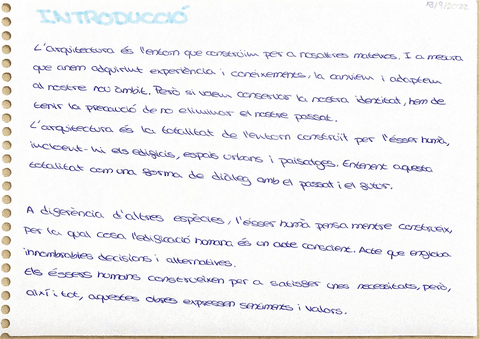 INTRODUCCIÓ
L'arquitectura és l'entorn que construïm per a nosaltres mateixos. I a mesura
que anem adquirint experiència i coneixements, la canviem i adaptem
al nostre nou àmbit. Però si volem conservar la nostra identitat, hem de
tenir la precaució de no eliminar el nostre passat.
L'arquitectura és la totalitat de l'entorn construït per l'ésser humà,
incloent-hi els edificis, espais urbans i paisatges. Entenent aquesta
totalitat com una forma de diàleg amb el passat i el futur.
A diferència d'altres espècies, l'ésser humà pensa mentre construeix,
per la qual cosa l'edificació humana és un acte conscient. Acte que engloba
innombrables decisions i alternatives.
Els éssers humans construeixen per a satisfer unes necessitats, però,
així i tot, aquestes obres expressen sentiments i valors.